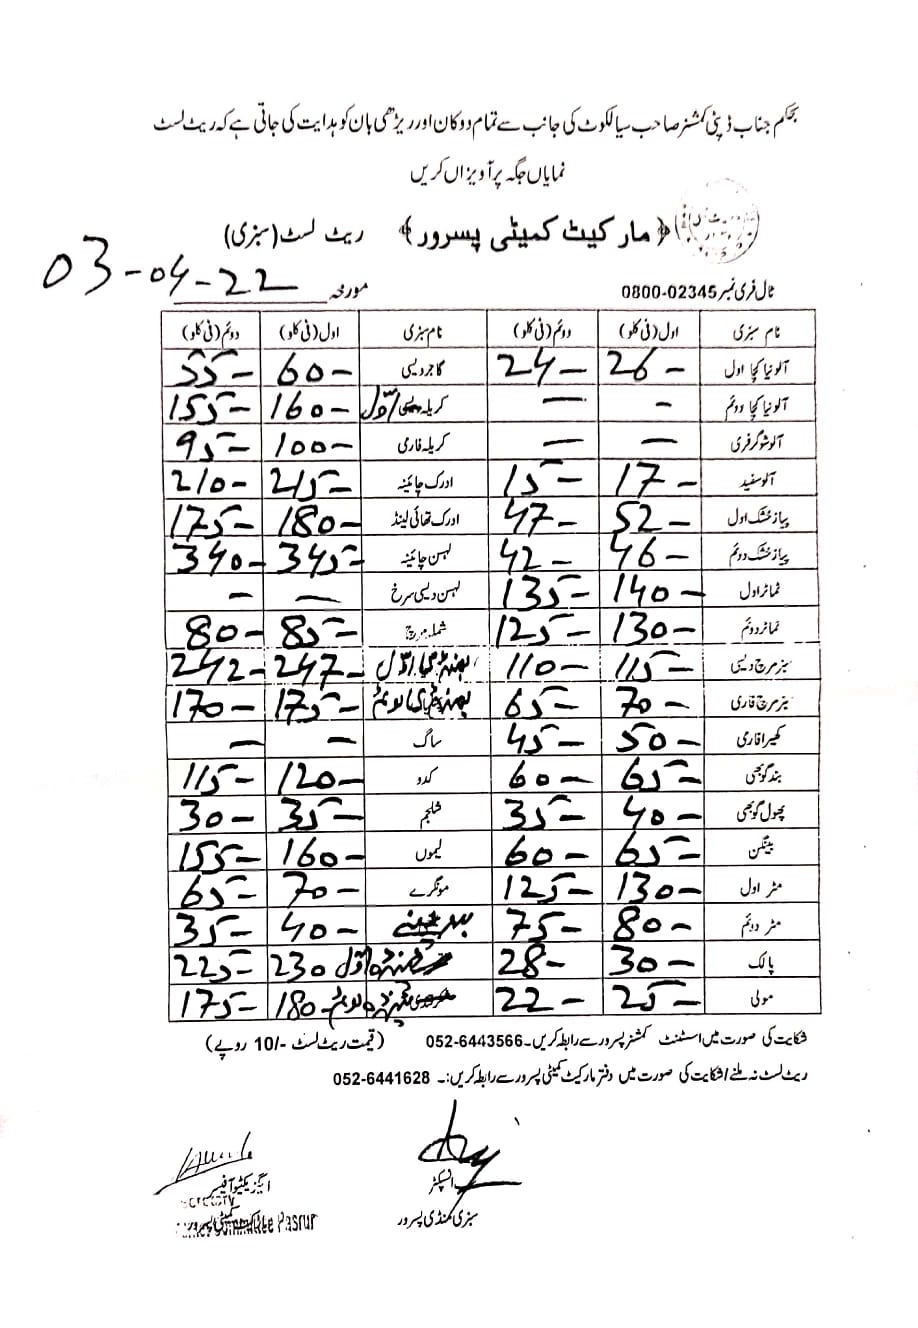 بحکم جناب ڈپٹی کمشنر صاحب سیالکوٹ کی جانب سے تمام دوکان اور ریڑھی بان کو ہدایت کی جاتی ہے کہ ریٹ لسٹ
نمایاں جگہ پر آویزاں کریں
﴿مارکیٹ کمیٹی پسرور﴾ ریٹ لسٹ (سبزی)
ٹال فری نمبر 0800-02345 مورخہ 03-04-22
نام سبزی اول (فی کلو) دوئم (فی کلو) نام سبزی اول (فی کلو) دوئم (فی کلو)
آلو نیا کچا اول 26- 24- گاجر دیسی 60- 55-
آلو نیا کچا دوئم - - کریلہ دیسی اوّل 160- 155-
آلو شوگر فری - - کریلہ فارمی 100- 95-
آلو سفید 17- 15- ادرک چائینہ 215- 210-
پیاز خشک اول 52- 47- ادرک تھائی لینڈ 180- 175-
پیاز خشک دوئم 46- 42- لہسن چائینہ 345- 340-
ٹماٹر اول 140- 135- لہسن دیسی سرخ - -
ٹماٹر دوئم 130- 125- شملہ مرچ 85- 80-
سبز مرچ دیسی 115- 110- بھنڈی اوّل 247- 242-
سبز مرچ فارمی 70- 65- بھنڈی دوئم 175- 170-
کھیرا فارمی 50- 45- ساگ - -
بند گوبھی 65- 60- کدو 120- 115-
پھول گوبھی 40- 35- شلجم 35- 30-
بینگن 65- 60- لیموں 160- 155-
مٹر اول 130- 125- مونگرے 70- 65-
مٹر دوئم 80- 75- 40- 35-
پالک 30- 28- اوّل 230 225-
مولی 25- 22- دوئم 180- 175-
شکایت کی صورت میں اسٹنٹ کمشنر پسرور سے رابطہ کریں۔ 052-6443566 (قیمت ریٹ لسٹ -/10 روپے)
ریٹ لسٹ نہ ملنے / شکایت کی صورت میں دفتر مارکیٹ کمیٹی پسرور سے رابطہ کریں:۔ 052-6441628
انسپکٹر
سبزی منڈی پسرور
ایگزیکٹو آفیسر
Secretary
Pasrur